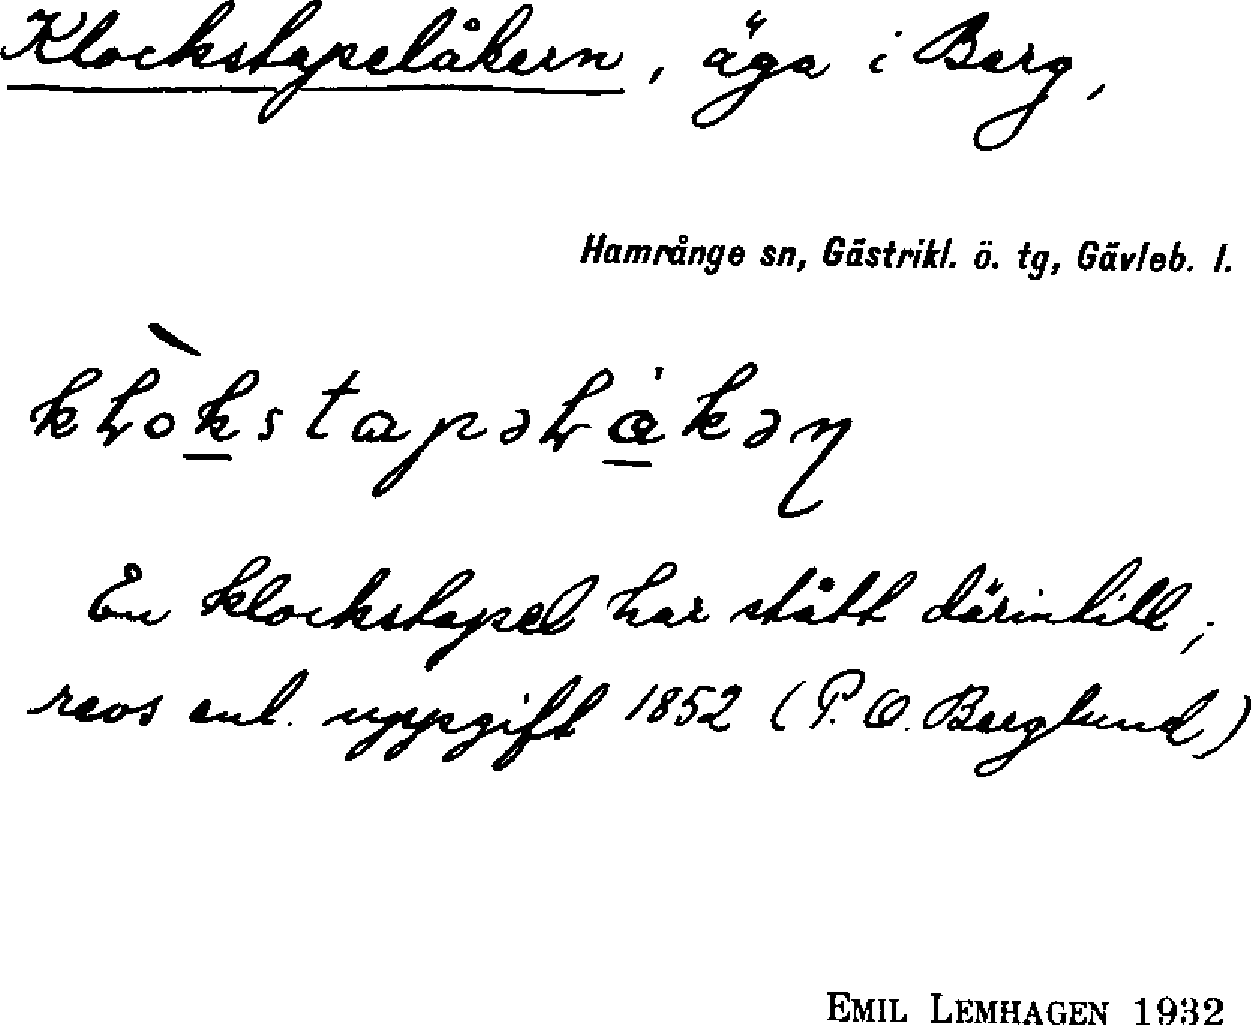 Klockstapelåkern, äga i Berg,
Hamrånge sn, Gästrikl. ö. tg, Gävleb. l.
En klockstapel har stått därintill,
revs enl. uppgift 1852 (P. O. Berglund)
EMIL LEMHAGEN 1932